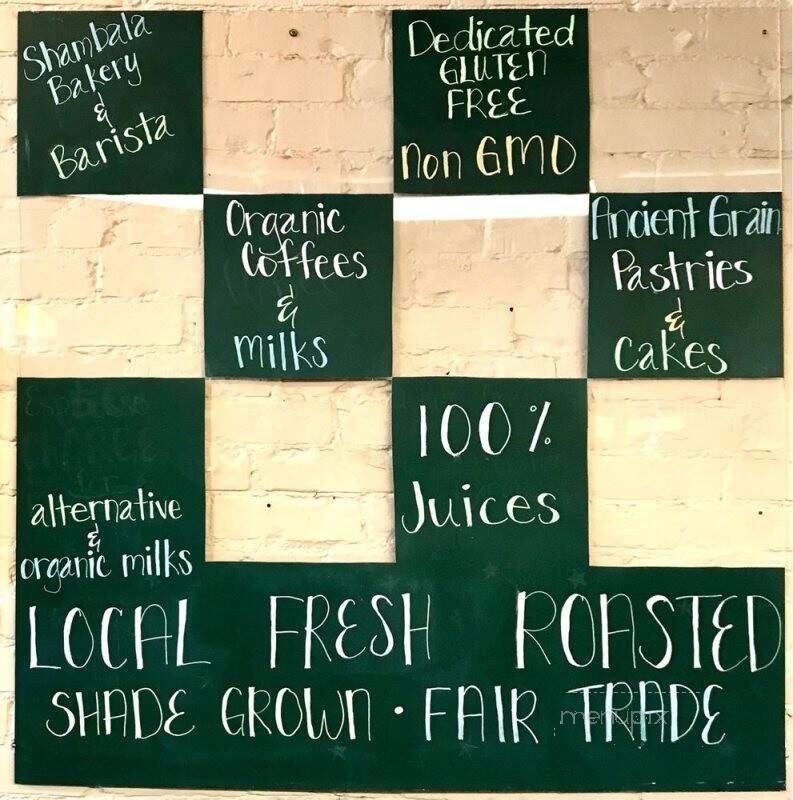 Shambala
Bakery
&
Barista
Dedicated
GLUTEN
FREE
Non GMO
Organic
Coffees
&
Milks
Ancient Grain
Pastries
&
Cakes
alternative
&
organic milks
100%
Juices
LOCAL FRESH ROASTED
SHADE GROWN · FAIR TRADE
menupix